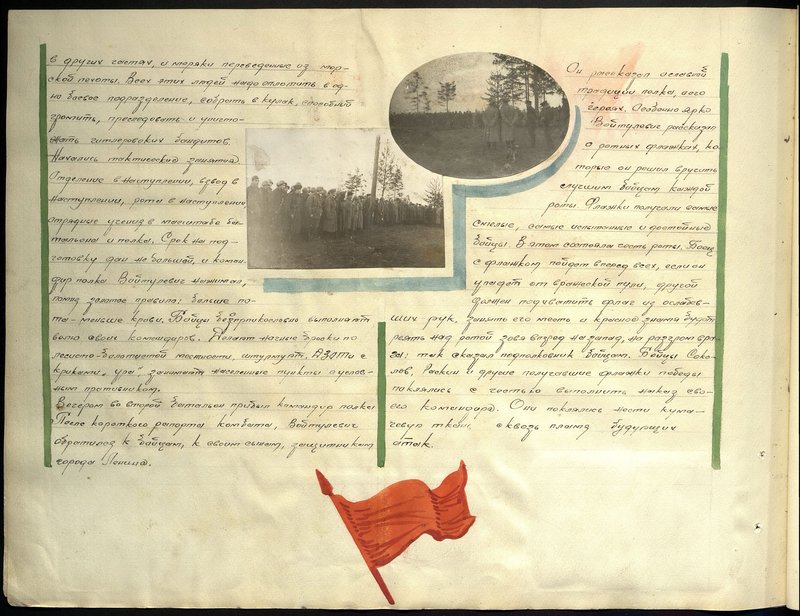 в других частях, и моряки переведенные из мор-
ской пехоты. Всех этих людей надо сплотить в од-
но боевое подразделение, собрать в кулак, способный
громить, преследовать и уничто-
жать гитлеровских бандитов.
Начались тактические занятия.
Отделение в наступлении, взвод в
наступлении, рота в наступлении
отрядные учения в масштабе ба-
тальона и полка. Срок на под-
готовку дан не большой, и коман-
дир полка Войтулевич нажимал,
помня золотое правило: больше по-
та - меньше крови. Бойцы безприкословно выполняют
волю своих командиров. Делают ночные броски по
лесисто-болотистой местности, штурмуют ДЗОТы с
криками "ура," занимают населенные пункты с услов-
ным противником.
Вечером во второй батальон прибыл командир полка
После короткого рапорта комбата, Войтулевич
обратился к бойцам, к своим сынам, защитникам
города Ленина.
Он рассказал о славной
традиции полка, его
героях. Особенно ярко
Войтулевич рассказал
о ротных флажках, ко-
торые он решил вручить
лучшим бойцам каждой
роты. Флажки получали самые
смелые, самые испытанные и достойные
бойцы. В этом состояла честь роты. Боец
с флажком пойдет вперед всех, если он
упадет от вражеской пули, другой
должен подхватить флаг из ослабев-
ших рук, занять его место и красное знамя будет
реять над ротой зовя вперед на запад, на разгром вра-
га: так сказал подполковник бойцам. Бойцы Соко-
лов, Раскин и другие получавшие флажки победы
поклялись с честью выполнить наказ сво-
его командира. Они поклялись нести кума-
човую ткань сквозь пламя будущих
атак.